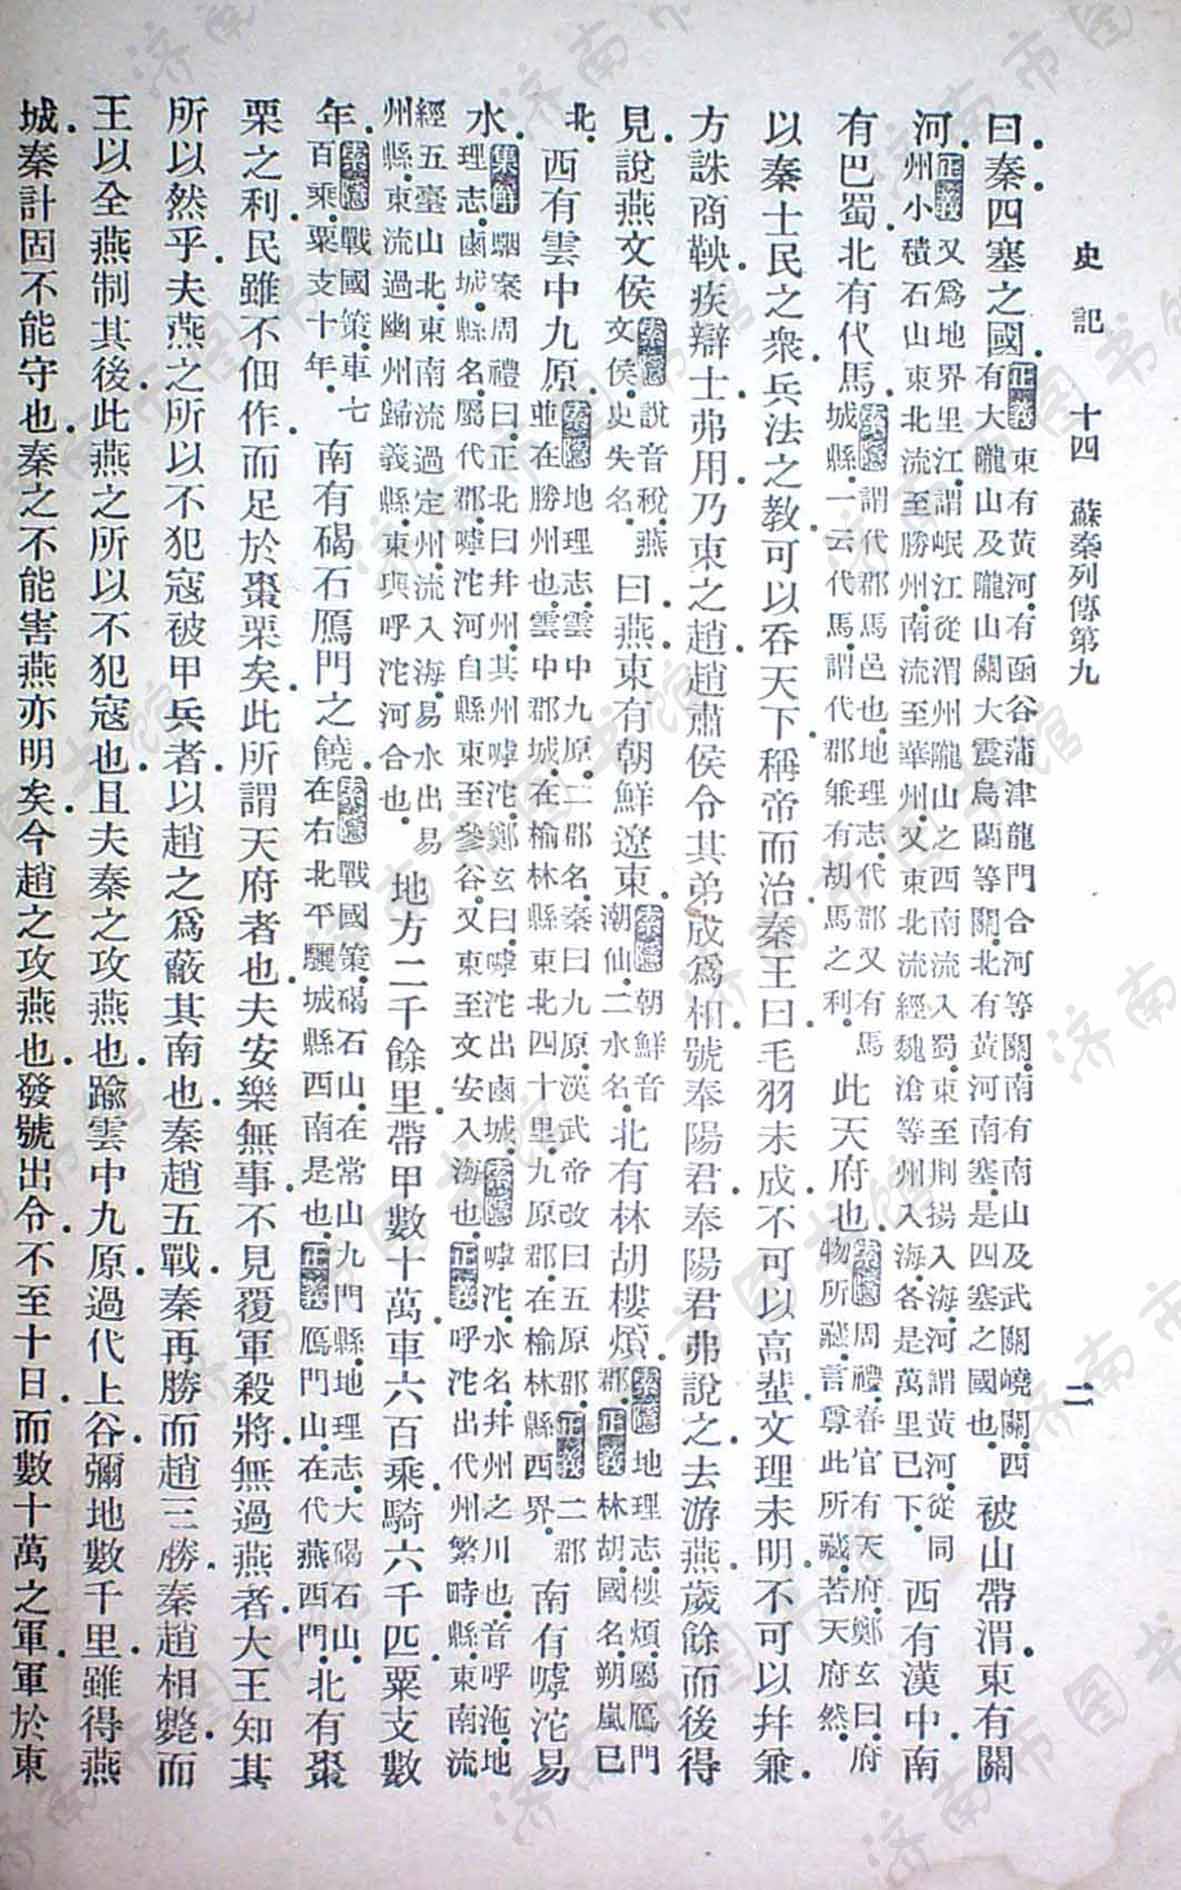 史記 十四 蘇秦列傳第九 二
曰。秦。四塞之國。正義東有黃河。有函谷蒲津龍門合河等關。南有南山及武關嶢關。西有大隴山及隴山關大震烏蘭等關。北有黃河南塞。是四塞之國也。被山帶渭。東有關
河。正義又爲地界里江。謂岷江。從渭州隴山之西南流入蜀。東至荆揚入海。河謂黃河。從同州小積石山東北流。至勝州。南流至華州。又東北流經魏滄等州入海。各是萬里已下。西有漢中。南
有巴蜀。北有代馬。索隱謂代郡馬邑也。地理志。代郡又有馬城縣。一云代馬。謂代郡兼有胡馬之利。此天府也。索隱周禮。春官有天府。鄭玄曰。府物所藏。言尊此所藏。若天府然。
以秦士民之衆。兵法之教。可以吞天下。稱帝而治。秦王曰。毛羽未成。不可以高蜚。文理未明。不可以并兼。
方誅商鞅。疾辯士。弗用。乃東之趙。趙肅侯令其弟成爲相。號奉陽君。奉陽君弗說之。去游燕。歲餘而後得
見。說燕文侯。索隱說音稅。燕文侯。史失名。曰。燕。東有朝鮮遼東。索隱朝鮮音潮仙。二水名。北有林胡樓煩。索隱地理志。樓煩。屬鴈門郡。正義林胡。國名。朔嵐已
北。西有雲中九原。索隱地理志。雲中九原。二郡名。秦曰九原。漢武帝改曰五原郡。正義二郡並在勝州也。雲中郡城。在榆林縣東北四十里。九原郡。在榆林縣西界。南有嘑沱易
水。集解駰案周禮曰。正北曰并州。其州嘑沱。鄭玄曰。嘑沱出鹵城。索隱嘑沱。水名。并州之川也。音呼沲。地理志。鹵城。縣名。屬代郡。嘑沱河自縣東至參谷。又東至文安入海也。正義呼沱出代州繁畤縣。東南流
經五臺山北。東南流過定州。流入海。易水出易州縣。東流過幽州歸義縣。東與呼沱河合也。地方二千餘里。帶甲數十萬。車六百乘。騎六千匹。粟支數
年。索隱戰國策。車七百乘。粟支十年。南有碣石鴈門之饒。索隱戰國策。碣石山。在常山九門縣。地理志。大碣石山。在右北平驪城縣西南是也。正義鴈門山。在代。燕西門。北有棗
栗之利。民雖不佃作。而足於棗栗矣。此所謂天府者也。夫安樂無事。不見覆軍殺將。無過燕者。大王知其
所以然乎。夫燕之所以不犯寇被甲兵者。以趙之爲蔽其南也。秦趙五戰。秦再勝而趙三勝。秦趙相斃。而
王以全燕制其後。此燕之所以不犯寇也。且夫秦之攻燕也。踰雲中九原。過代上谷。彌地數千里。雖得燕
城。秦計固不能守也。秦之不能害燕亦明矣。今趙之攻燕也。發號出令。不至十日。而數十萬之軍。軍於東